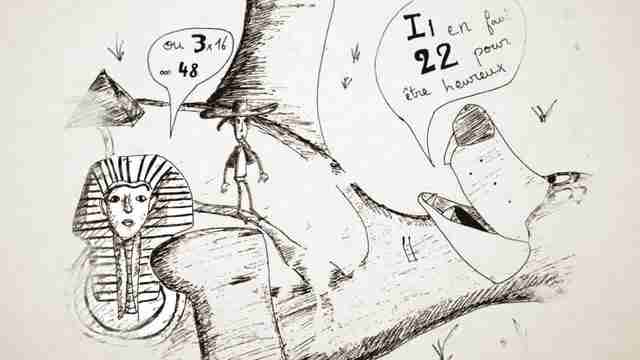 ou 3x16
48
Il en faut
22 pour
être heureux